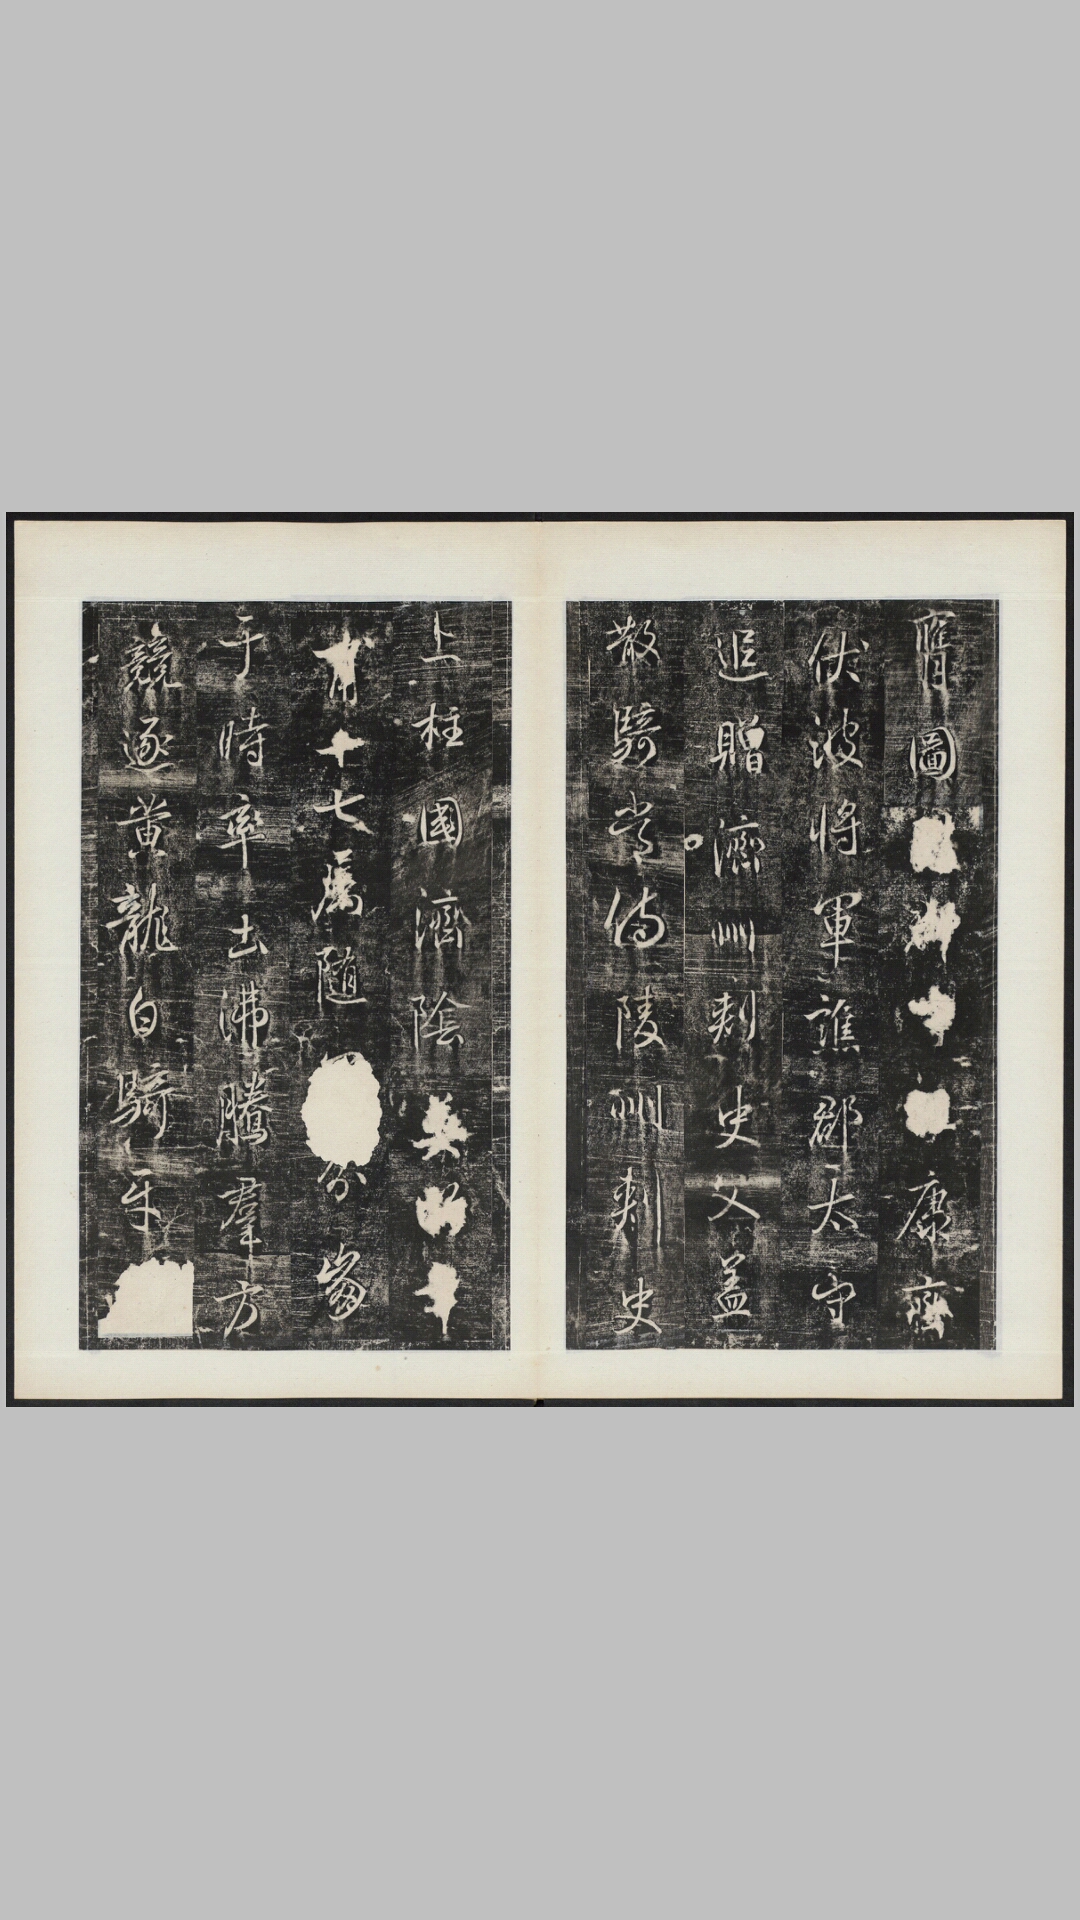 膺圖康齊
伏波將軍譙郡太守
追贈濟州刺史父盖
散騎常侍陵州刺史
上柱國濟陰
甫十七屬隨分崩
于時率土沸騰羣方
競逐黄龍白騎牙